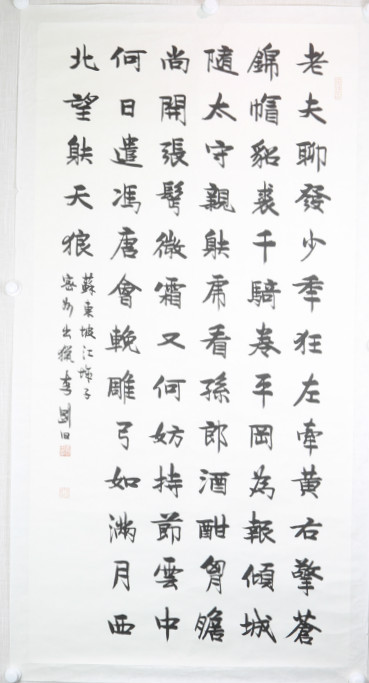 老夫聊發少年狂左牽黃右擎蒼
錦帽貂裘千騎卷平岡為報傾城
隨太守親射虎看孫郎酒酣胸膽
尚開張鬢微霜又何妨持節雲中
何日遣馮唐會挽雕弓如滿月西
北望射天狼
蘇東坡江城子
密州出獵李國